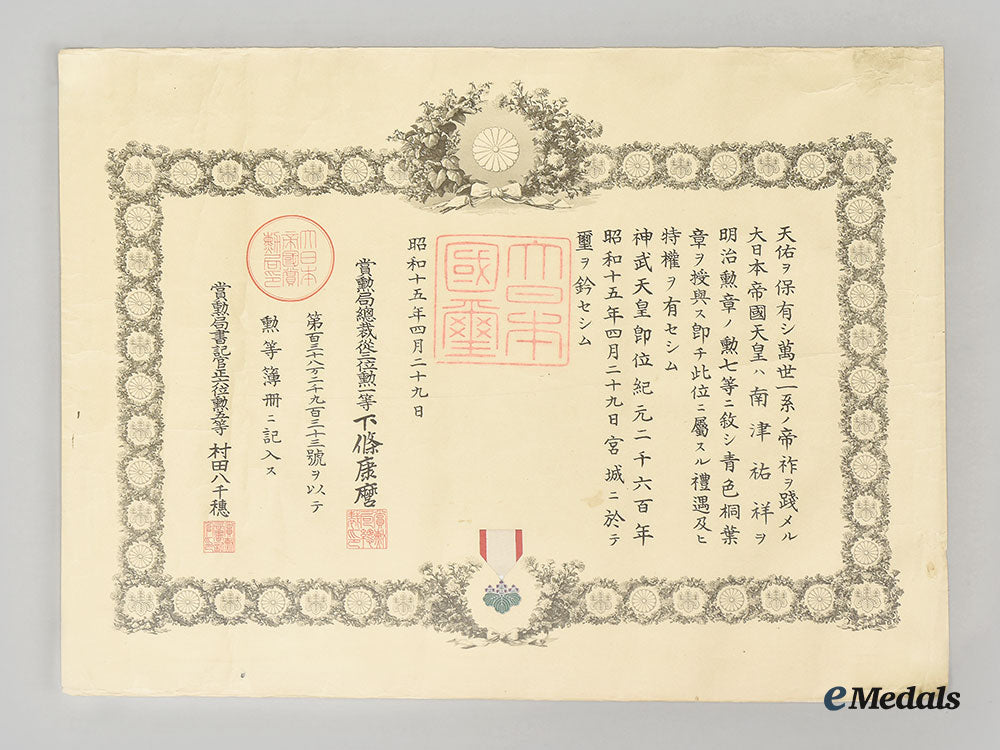 天佑ヲ保有シ萬世一系ノ帝祚ヲ踐メル
大日本帝國天皇ハ南津祐祥ヲ
明治勲章ノ勲七等ニ敘シ青色桐葉
章ヲ授與ス卽チ此位ニ屬スル禮遇及ヒ
特權ヲ有セシム
神武天皇卽位紀元二千六百年
昭和十五年四月二十九日宮城ニ於テ
璽ヲ鈐セシム
大日本國璽
昭和十五年四月二十九日
賞勲局總裁從三位勲一等下條康麿
第百三十八万二千九百三十三號ヲ以テ
勲等簿冊ニ記入ス
大日本帝國賞勲局印
賞勲局書記官正六位勲五等村田八千穗
eMedals